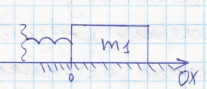 m1
0
OX